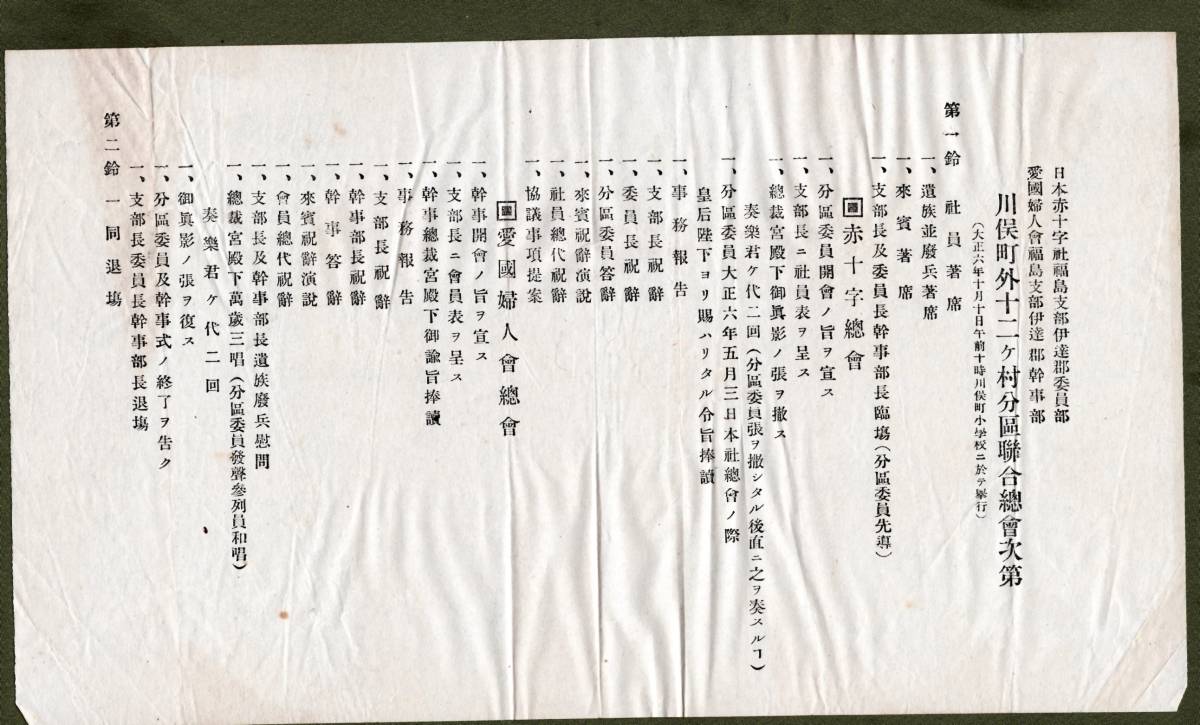 日本赤十字社福島支部伊達郡委員部
愛國婦人會福島支部伊達郡幹事部
川俣町外十二ヶ村分區聯合總會次第
（大正六年十月十日午前十時川俣町小學校ニ於テ擧行）
第一鈴 社員著席
一、遺族並廢兵著席
一、來賓著席
一、支部長及委員長幹事部長臨塲（分區委員先導）
赤十字總會
一、分區委員開會ノ旨ヲ宣ス
一、支部長ニ社員表ヲ呈ス
一、總裁宮殿下御眞影ノ張ヲ撤ス
奏樂君ケ代二回（分區委員張ヲ撤シタル後直ニ之ヲ奏スルヿ）
一、分區委員大正六年五月三日本社總會ノ際
皇后陛下ヨリ賜ハリタル令旨捧讀
一、事務報告
一、支部長祝辭
一、委員長祝辭
一、分區委員答辭
一、來賓祝辭演說
一、社員總代祝辭
一、協議事項提案
愛國婦人會總會
一、幹事開會ノ旨ヲ宣ス
一、支部長ニ會員表ヲ呈ス
一、幹事總裁宮殿下御諭旨捧讀
一、事務報告
一、支部長祝辭
一、幹事部長祝辭
一、幹事答辭
一、來賓祝辭演說
一、會員總代祝辭
一、支部長及幹事部長遺族廢兵慰問
一、總裁宮殿下萬歲三唱（分區委員發聲參列員和唱）
奏樂君ケ代二回
一、御眞影ノ張ヲ復ス
一、分區委員及幹事式ノ終了ヲ告ク
一、支部長委員長幹事部長退塲
第二鈴 一同退塲